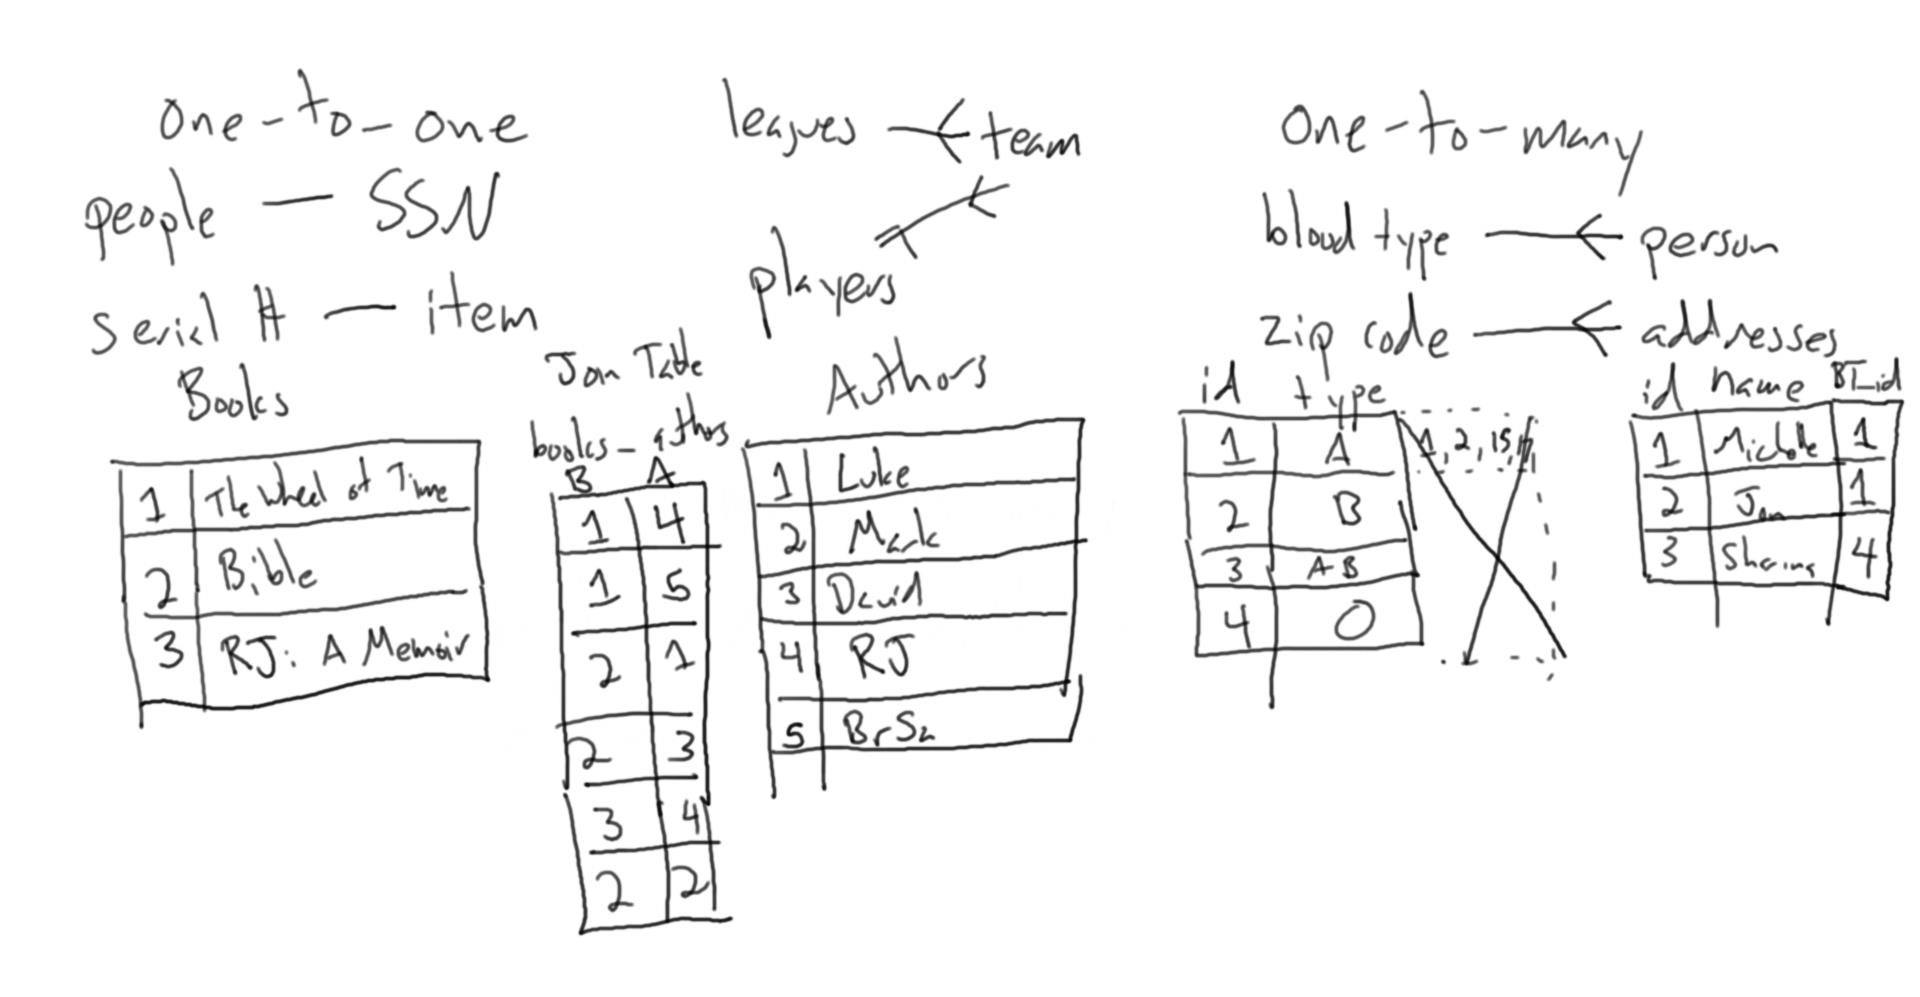 One-to-one
people — SSN
Serial # — item
leagues team
players
One-to-many
blood type person
zip code addresses
Books
1 The Wheel of Time
2 Bible
3 RJ: A Memoir
Join Table
books_athrs
B A
1 4
1 5
2 1
2 3
3 4
2 2
Authors
1 Luke
2 Mark
3 David
4 RJ
5 BrSa
id type
1 A
2 B
3 AB
4 O
1, 2, 15,
id name BT_id
1 Michelle 1
2 Jon 1
3 4